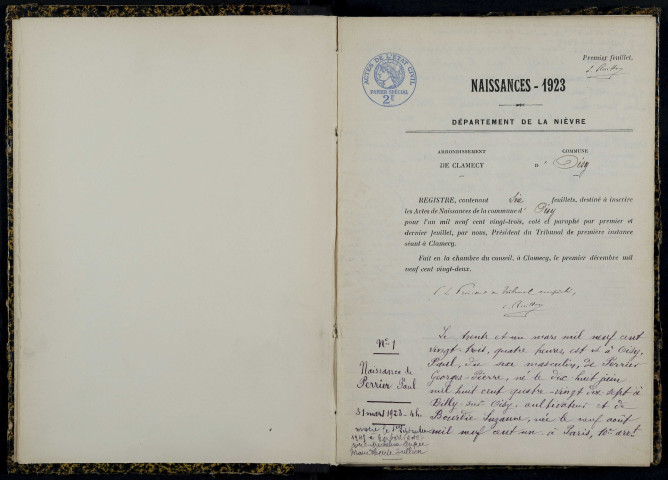 Premier feuillet.
ACTES DE L'ETAT CIVIL
PAPIER SPECIAL
2F
NAISSANCES - 1923
DÉPARTEMENT DE LA NIÈVRE
ARRONDISSEMENT
DE CLAMECY
COMMUNE
d' Oisy
REGISTRE, contenant Six feuillets, destiné à inscrire
les Actes de Naissances de la commune d' Oisy
pour l'an mil neuf cent vingt-trois, coté et paraphé par premier et
dernier feuillet, par nous, Président du Tribunal de première instance
séant à Clamecy.
Fait en la chambre du conseil, à Clamecy, le premier décembre mil
neuf cent vingt-deux.
N° 1
Naissance de
Perrier Paul
31 mars 1923 - 4h.
marié le
Le trente et un mars mil neuf cent
vingt trois, quatre heures, est né à Oisy,
Paul, du sexe masculin, de Perrier
Georges Pierre, né le dix huit juin
mil huit cent quatre-vingt dix sept à
Billy-sur-Oisy, cultivateur et de
Bourdie Suzanne, née le neuf août
mil neuf cent un à Paris, 10e arrt